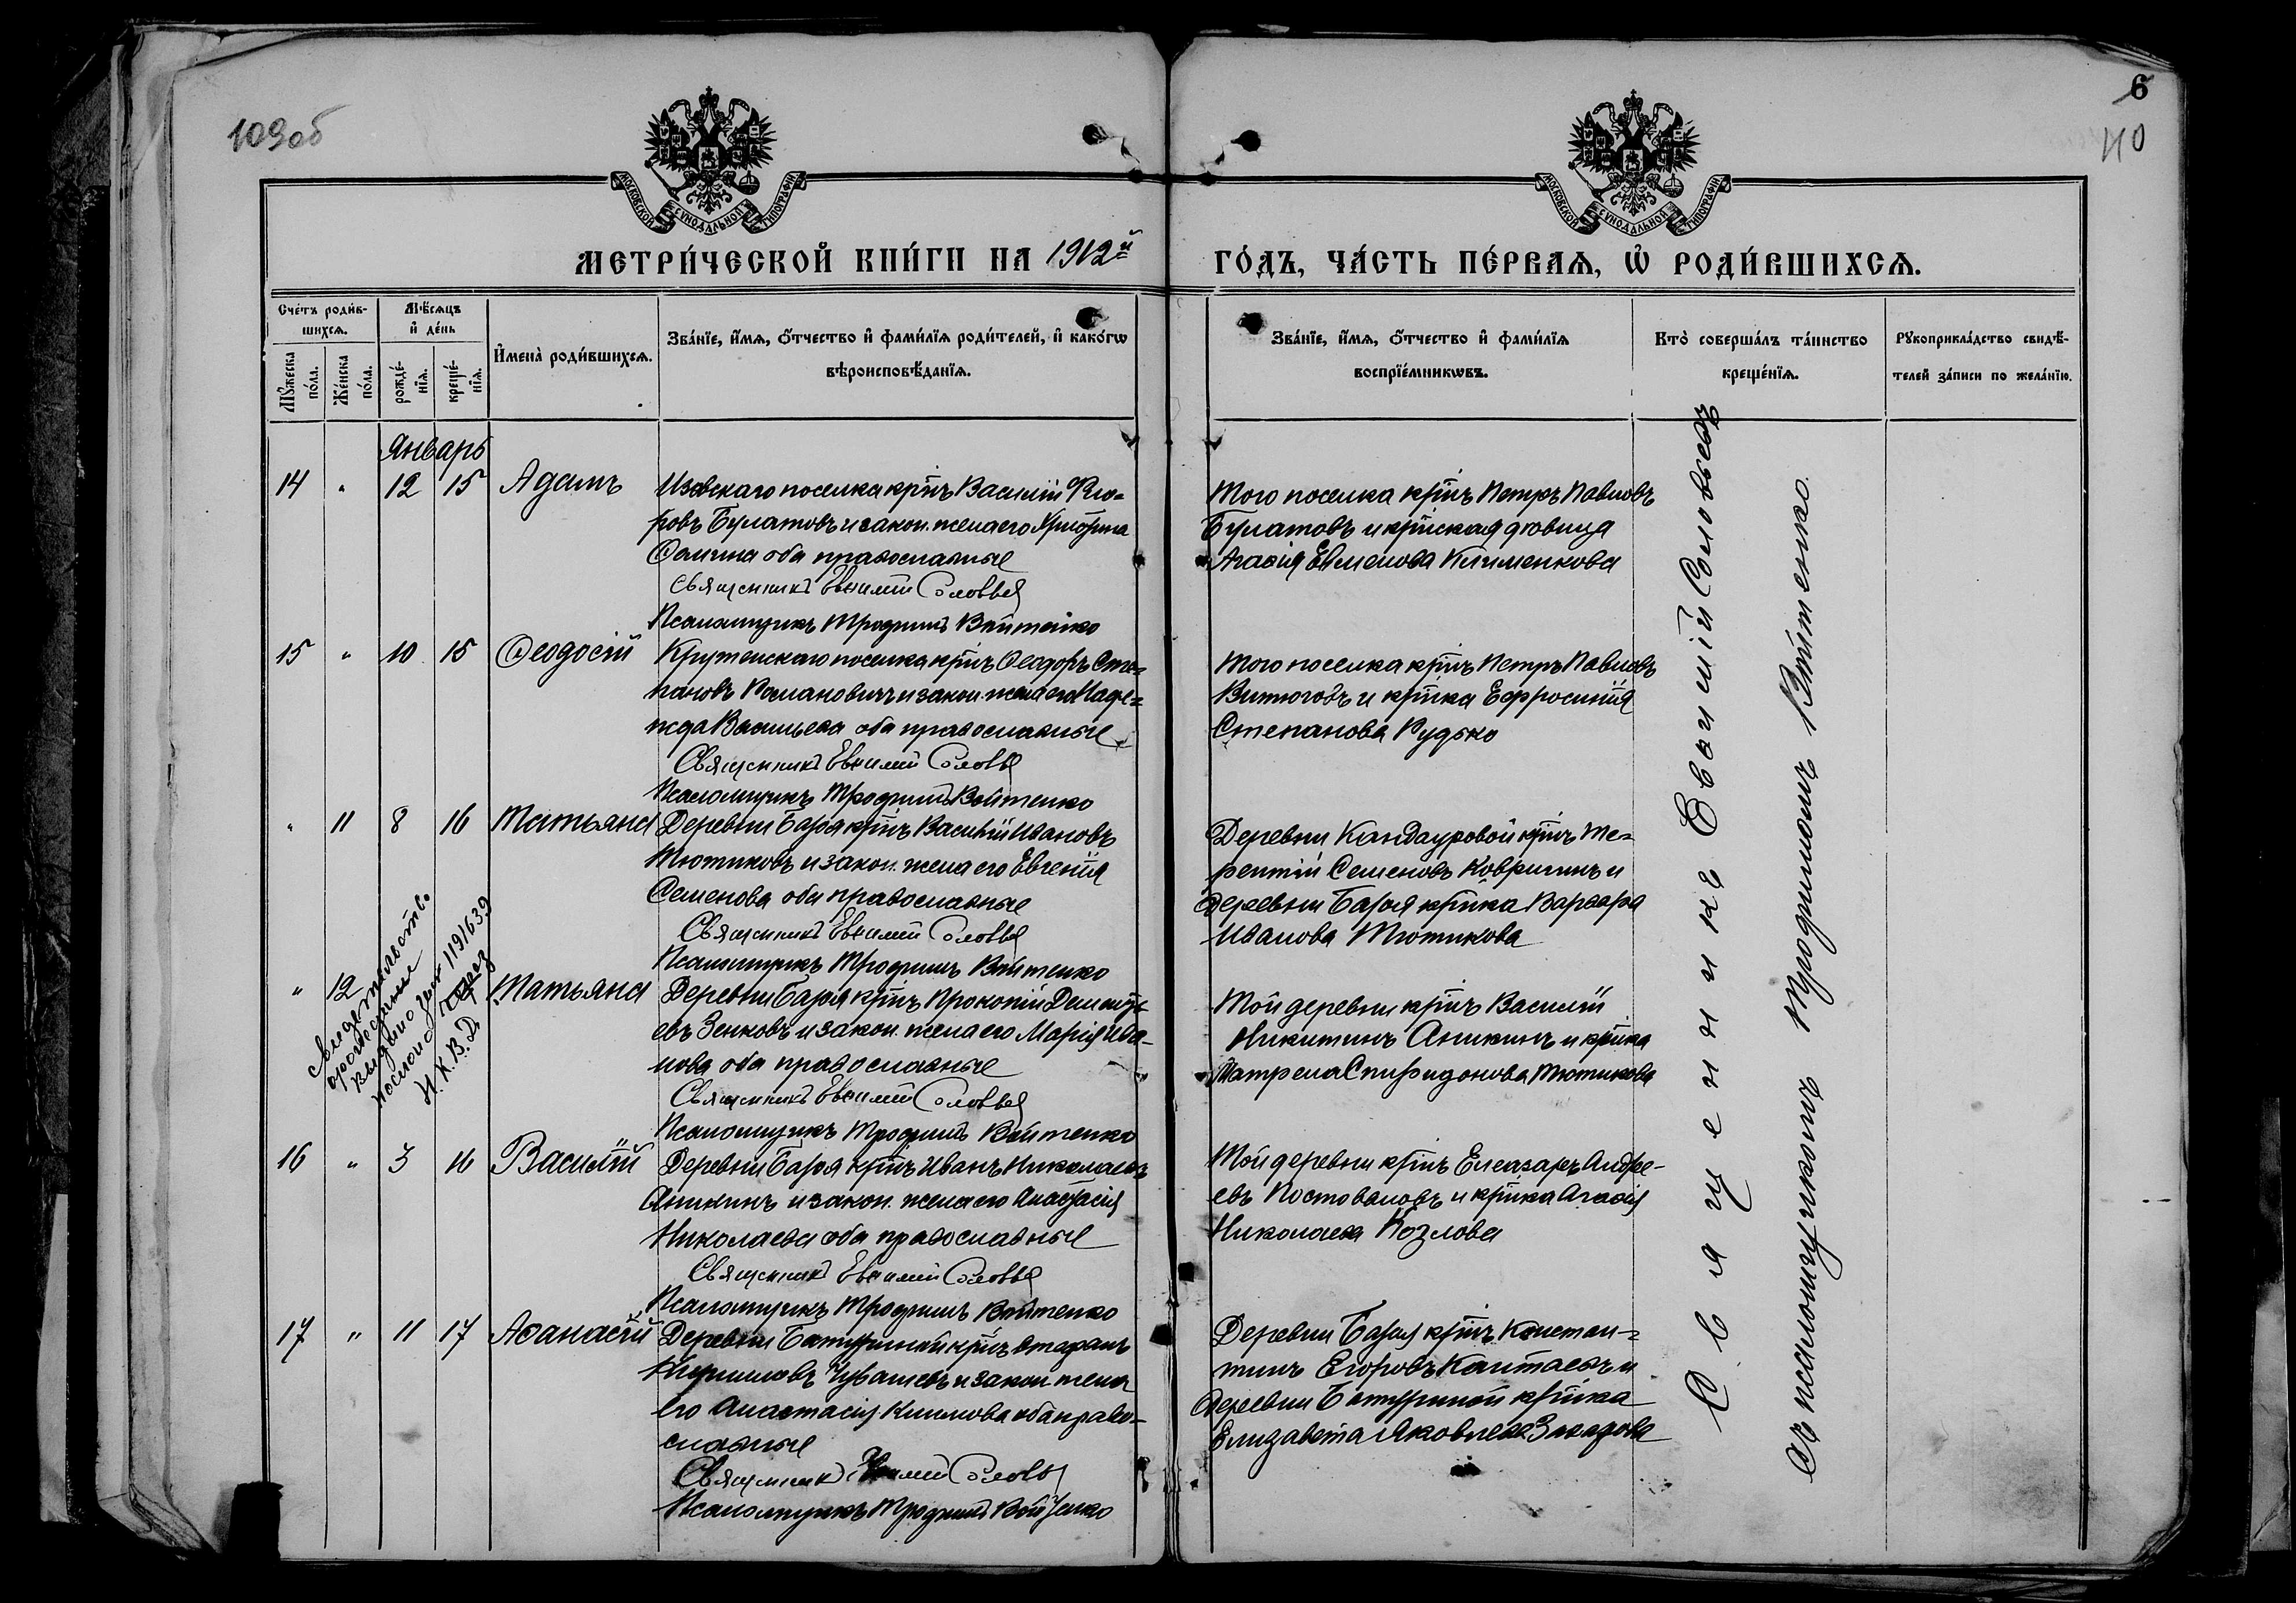 109об
6
110
МОСКОВСКОЙ СѴНОДАЛЬНОЙ ТИПОГРАФІИ
МОСКОВСКОЙ СѴНОДАЛЬНОЙ ТИПОГРАФІИ
МЕТРИ́ЧЕСКОЙ КНИ́ГИ НА 1912й
ГО́ДЪ, ЧА́СТЬ ПЕ́РВАѦ, Ѽ РОДИ́ВШИХСѦ.
Сче́тъ роди́в-
шихсѧ.
Мꙋ́жеска
по́ла.
Же́нска
по́ла.
Мѣ́сѧцъ
и҆ де́нь
рожде́-
нїѧ.
креще́-
нїѧ.
И҆мена̀ роди́вшихсѧ.
Зва́нїе, и҆́мѧ, ѻ҆́тчество и҆ фами́лїѧ роди́телей, и҆ како́гѡ
вѣроисповѣ́данїѧ.
Зва́нїе, и҆́мѧ, ѻ҆́тчество и҆ фами́лїѧ
воспрїе́мникѡвъ.
Кто̀ соверша́лъ та́инство
креще́нїѧ.
Рꙋкоприкла́дство свидѣ́-
телей за́писи по жела́нїю.
Январь
14 " 12 15 Адамъ
Изовскаго поселка крнъ Василій
ровъ Булатовъ и закон. жена его Христина
Фомина оба православные
Священникъ Евѳимій Соловьев
Псаломщикъ Трофимъ Войтенко
Того поселка крнъ Петръ Павловъ
Булатовъ и крнская дѣвица
Агаѳія Евменова Клименкова
15 " 10 15 Ѳеодосій
Крутенскаго поселка крнъ Ѳеодоръ Сте=
пановъ Романовичъ и закон. жена его Наде=
жда Васильева оба православные
Священникъ Евѳимій Соловьев
Псаломщикъ Трофимъ Войтенко
Того поселка крнъ Петръ Павловъ
и крнка Ефросинія
Степанова Рудько
" 11 8 16 Татьяна
Деревни Барая крнъ Василій Ивановъ
Тютиковъ и закон. жена его Евгенія
Семенова оба православные
Священникъ Евѳимій Соловьев
Псаломщикъ Трофимъ Войтенко
Деревни Кандауровой крнъ Те=
рентій Семеновъ Ковригинъ и
деревни Барая крнка Варвара
Иванова Тютикова
" 12 Татьяна
Деревни Барая крнъ Прокопій
евъ Зенковъ и закон. жена его Марія Ива-
нова оба православные
Священникъ Евѳимій Соловьев
Псаломщикъ Трофимъ Войтенко
Той деревни крнъ Василій
Никитинъ Аникинъ и крнка
Матрена Спиридонова Тютикова
Свидетельство
о рождении
выдано
послано через
Н.К.В.Д.
16 " 3 16 Василій
Деревни Барая крнъ Иванъ Николаевъ
Аникинъ и закон. жена его Анастасія
Николаева оба православные
Священникъ Евѳимій Соловьев
Псаломщикъ Трофимъ Войтенко
Той деревни крнъ Елеазаръ Андре-
евъ Постоваловъ и крнка Агаѳія
Николаева Козлова
17 " 11 17 Аѳанасій
Деревни Батуриной крнъ Стефанъ
Кирилловъ Чувашевъ и закон жена
его Анастасія Климова оба право-
славные
Священникъ Евѳимій Соловьев
Псаломщикъ Трофимъ Войтенко
Деревни Барая крнъ Констан=
тинъ Егоровъ и
деревни Батуриной крнка
Елизавета Яковлева
Священникъ Евѳимій Соловьевъ
съ псаломщикомъ Трофимомъ Войтенко.